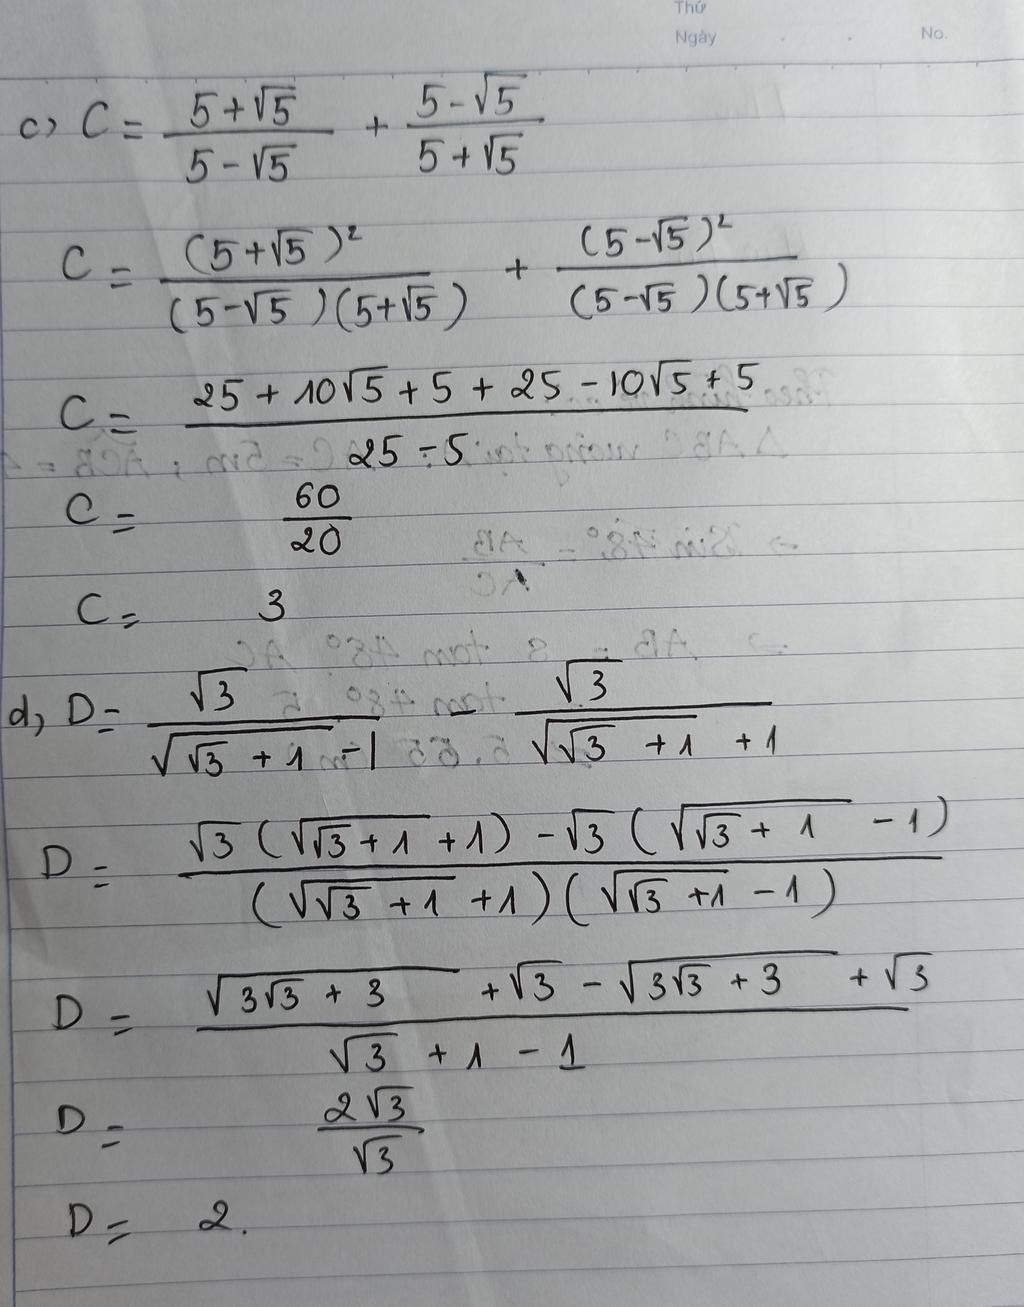 Thứ
Ngày . . No.
c) C = (5+√5)/(5-√5) + (5-√5)/(5+√5)
C = (5+√5)²/((5-√5)(5+√5)) + (5-√5)²/((5-√5)(5+√5))
C = (25 + 10√5 + 5 + 25 - 10√5 + 5)/(25 - 5)
C = 60/20
C = 3
d, D = √3/(√(√3 + 1) - 1) - √3/(√(√3 + 1) + 1)
D = (√3(√(√3 + 1) + 1) - √3(√(√3 + 1) - 1))/((√(√3 + 1) + 1)(√(√3 + 1) - 1))
D = (√(3√3 + 3) + √3 - √(3√3 + 3) + √3)/(√3 + 1 - 1)
D = 2√3/√3
D = 2.